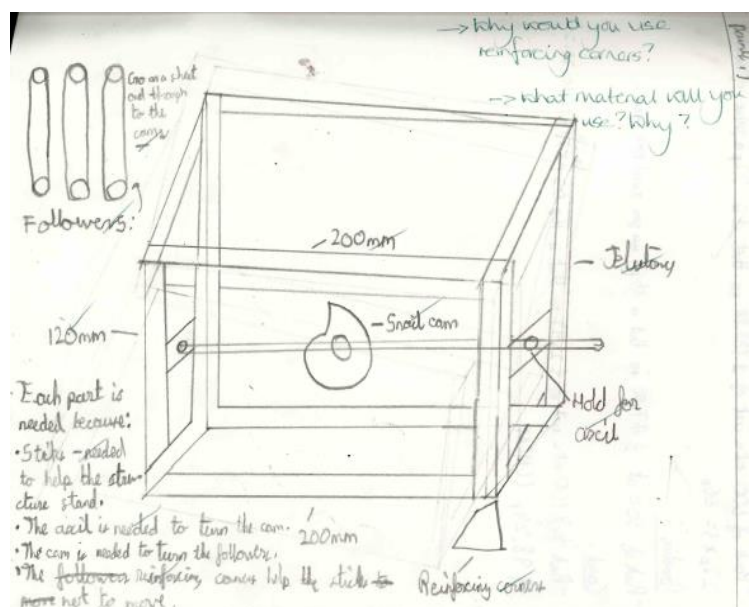 → Why would you use
reinforcing corners?
→ What material will you
use? Why?
Followers:
200mm
Jelutong
Snail cam
120mm
Hold for
axcil
Each part is
needed because:
• Sticks - needed
to help the stru-
cture stand.
• The axcil is needed to turn the cam.
200mm
• The cam is needed to turn the followers.
• The follower reinforcing corners help the sticks to
move not to move.
Reinforcing corners